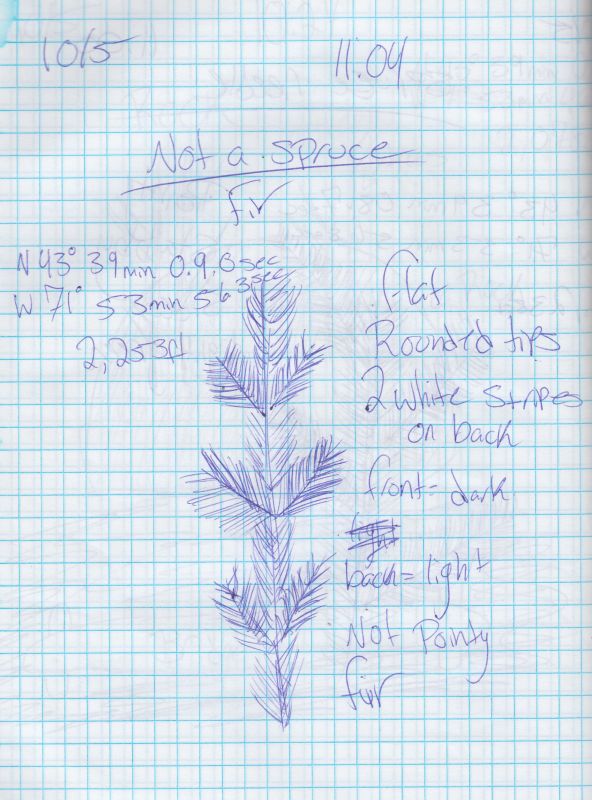 10/5
11:04
Not a spruce
fir
N 43° 39min 0.9.6sec
W 71° 53min 56.3sec
2,253ft
flat
Rounded tips
2 white stripes
on back
front = dark
back = light
Not Pointy
fir